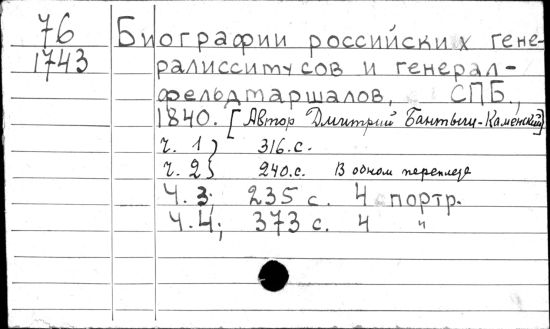 76 Биографии российских гене-
1743 ралиссимусов и генерал-
фельдмаршалов, СПБ.,
1840. [Автор Дмитрий Бантыш-Каменский]
ч. 1) 316.с.
ч. 2) 240.с. В одном переплете
Ч. 3; 235 с. 4 портр.
Ч. 4; 373 с. 4 "